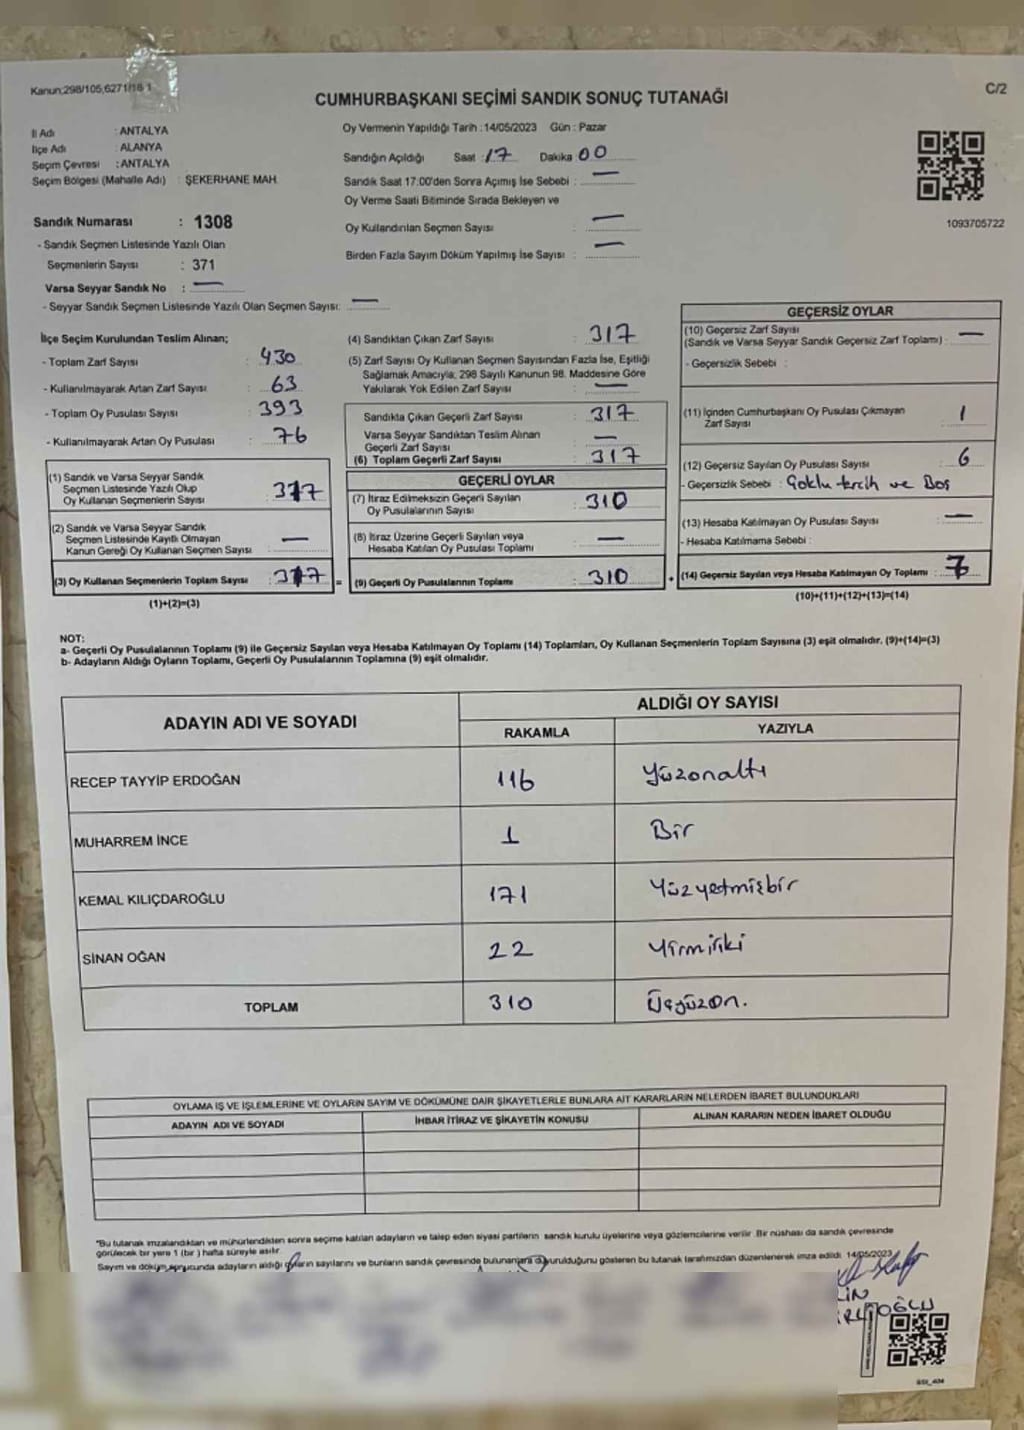 Kanun;298/105,6271/18 1
C/2
CUMHURBAŞKANI SEÇİMİ SANDIK SONUÇ TUTANAĞI
İl Adı : ANTALYA
İlçe Adı : ALANYA
Seçim Çevresi : ANTALYA
Seçim Bölgesi (Mahalle Adı) : ŞEKERHANE MAH.
Oy Vermenin Yapıldığı Tarih : 14/05/2023 Gün : Pazar
Sandığın Açıldığı Saat : 17 Dakika 00
Sandık Saat 17:00'den Sonra Açımış İse Sebebi : —
Oy Verme Saati Bitiminde Sırada Bekleyen ve
Oy Kullandırılan Seçmen Sayısı : —
Birden Fazla Sayım Döküm Yapılmış İse Sayısı : —
1093705722
Sandık Numarası : 1308
- Sandık Seçmen Listesinde Yazılı Olan
Seçmenlerin Sayısı : 371
Varsa Seyyar Sandık No : —
- Seyyar Sandık Seçmen Listesinde Yazılı Olan Seçmen Sayısı: —
İlçe Seçim Kurulundan Teslim Alınan;
- Toplam Zarf Sayısı : 430
- Kullanılmayarak Artan Zarf Sayısı : 63
- Toplam Oy Pusulası Sayısı : 393
- Kullanılmayarak Artan Oy Pusulası : 76
(1) Sandık ve Varsa Seyyar Sandık
Seçmen Listesinde Yazılı Olup
Oy Kullanan Seçmenlerin Sayısı : 317
(2) Sandık ve Varsa Seyyar Sandık
Seçmen Listesinde Kayıtlı Olmayan
Kanun Gereği Oy Kullanan Seçmen Sayısı : —
(3) Oy Kullanan Seçmenlerin Toplam Sayısı : 317 =
(1)+(2)=(3)
(4) Sandıktan Çıkan Zarf Sayısı : 317
(5) Zarf Sayısı Oy Kullanan Seçmen Sayısından Fazla İse, Eşitliği
Sağlamak Amacıyla, 298 Sayılı Kanunun 98. Maddesine Göre
Yakılarak Yok Edilen Zarf Sayısı : —
Sandıkta Çıkan Geçerli Zarf Sayısı : 317
Varsa Seyyar Sandıktan Teslim Alınan
Geçerli Zarf Sayısı : —
(6) Toplam Geçerli Zarf Sayısı : 317
GEÇERLİ OYLAR
(7) İtiraz Edilmeksizin Geçerli Sayılan
Oy Pusulalarının Sayısı : 310
(8) İtiraz Üzerine Geçerli Sayılan veya
Hesaba Katılan Oy Pusulası Toplamı : —
(9) Geçerli Oy Pusulalarının Toplamı : 310 +
GEÇERSİZ OYLAR
(10) Geçersiz Zarf Sayısı
(Sandık ve Varsa Seyyar Sandık Geçersiz Zarf Toplamı) : —
- Geçersizlik Sebebi :
(11) İçinden Cumhurbaşkanı Oy Pusulası Çıkmayan
Zarf Sayısı : 1
(12) Geçersiz Sayılan Oy Pusulası Sayısı : 6
- Geçersizlik Sebebi : Çoklu tercih ve Boş
(13) Hesaba Katılmayan Oy Pusulası Sayısı : —
- Hesaba Katılmama Sebebi :
(14) Geçersiz Sayılan veya Hesaba Katılmayan Oy Toplamı : 7
(10)+(11)+(12)+(13)=(14)
NOT:
a- Geçerli Oy Pusulalarının Toplamı (9) ile Geçersiz Sayılan veya Hesaba Katılmayan Oy Toplamı (14) Toplamları, Oy Kullanan Seçmenlerin Toplam Sayısına (3) eşit olmalıdır. (9)+(14)=(3)
b- Adayların Aldığı Oyların Toplamı, Geçerli Oy Pusulalarının Toplamına (9) eşit olmalıdır.
ADAYIN ADI VE SOYADI
ALDIĞI OY SAYISI
RAKAMLA YAZIYLA
RECEP TAYYİP ERDOĞAN 116 Yüzonaltı
MUHARREM İNCE 1 Bir
KEMAL KILIÇDAROĞLU 171 Yüzyetmişbir
SİNAN OĞAN 22 Yirmiiki
TOPLAM 310 Üçyüzon.
OYLAMA İŞ VE İŞLEMLERİNE VE OYLARIN SAYIM VE DÖKÜMÜNE DAİR ŞİKAYETLERLE BUNLARA AİT KARARLARIN NELERDEN İBARET BULUNDUKLARI
ADAYIN ADI VE SOYADI
İHBAR İTİRAZ VE ŞİKAYETİN KONUSU
ALINAN KARARIN NEDEN İBARET OLDUĞU
"Bu tutanak imzalandıktan ve mühürlendikten sonra seçime katılan adayların ve talep eden siyasi partilerin sandık kurulu üyelerine veya gözlemcilerine verilir. Bir nüshası da sandık çevresinde
görülecek bir yere 1 (bir ) hafta süreyle asılır.
Sayım ve döküm sonucunda adayların aldığı oyların sayılarını ve bunların sandık çevresinde bulunanlara duyurulduğunu gösteren bu tutanak tarafımızdan düzenlenerek imza edildi. 14/05/2023